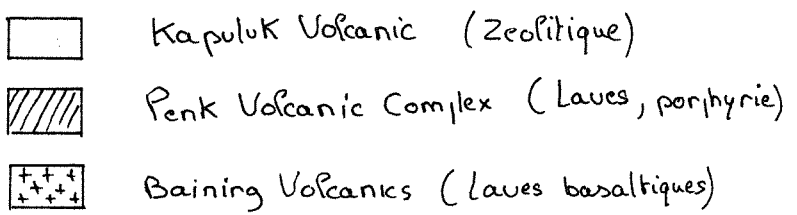 Kapuluk Volcanic (Zeolitique)
Penk Volcanic Complex (Laves, porphyrie)
Baining Volcanics (laves basaltiques)